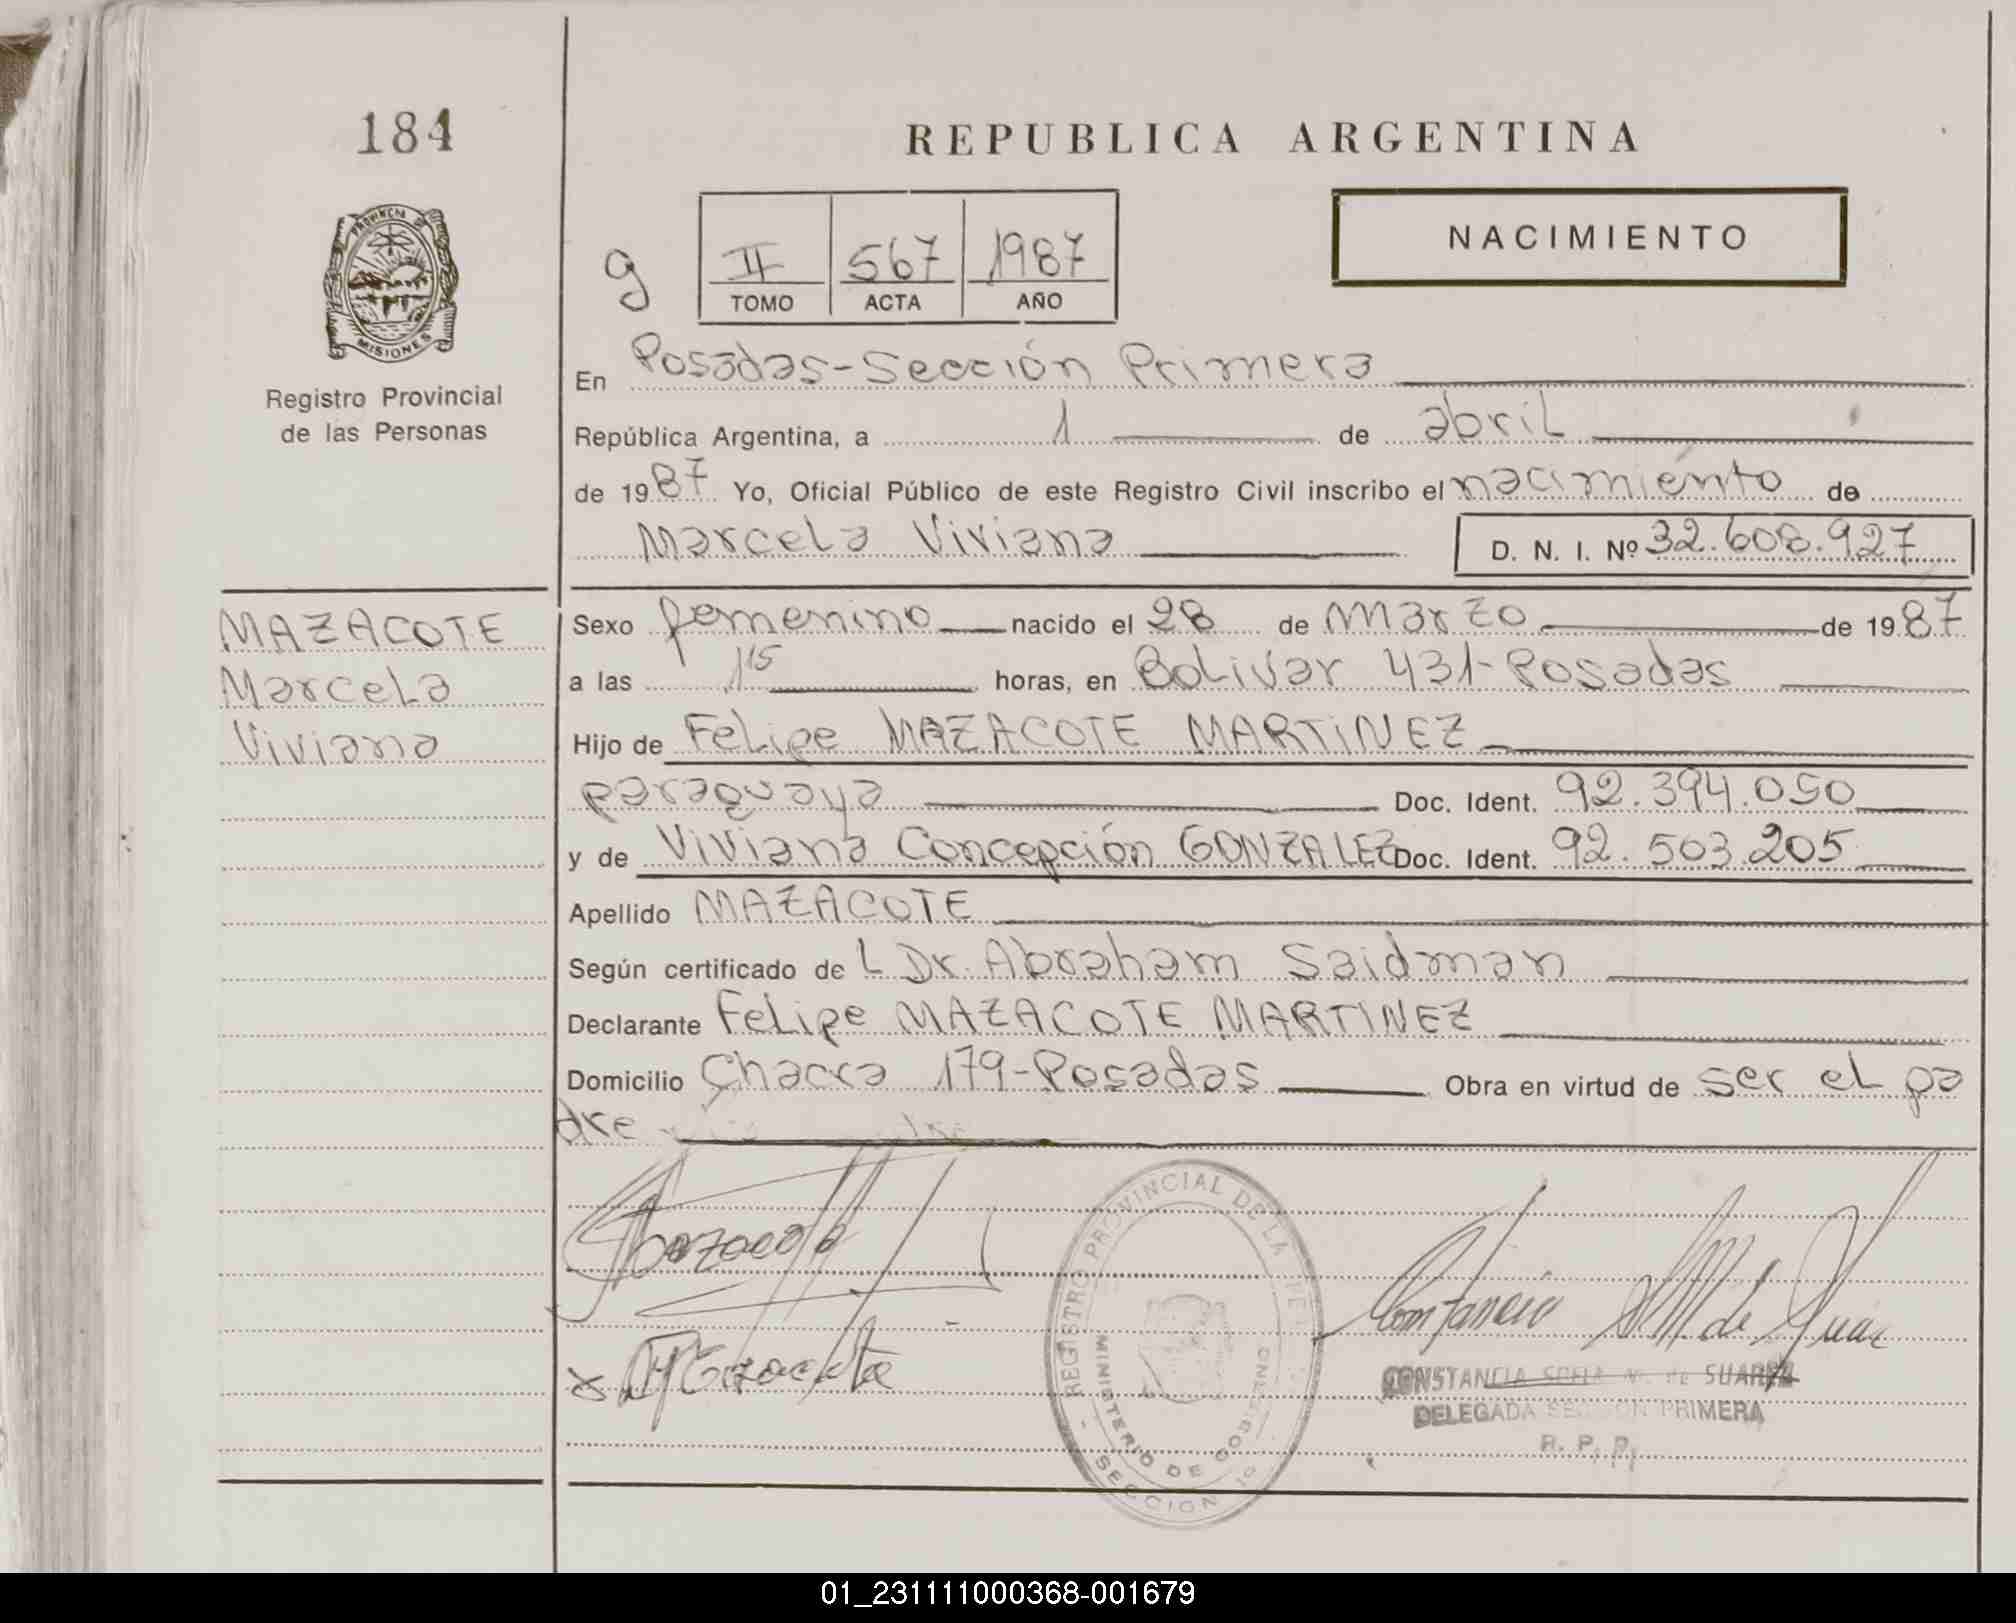 184
REPUBLICA ARGENTINA
PROVINCIA DE
MISIONES
Registro Provincial
de las Personas
g
II 567 1987
TOMO ACTA AÑO
NACIMIENTO
En Posadas-Sección Primera
República Argentina, a 1 de abril
de 1987 Yo, Oficial Público de este Registro Civil inscribo el nacimiento de
Marcela Viviana D. N. I. Nº 32.608.927
MAZACOTE
Marcela
Viviana
Sexo femenino nacido el 28 de marzo de 1987
a las 1 15 horas, en Bolivar 431-Posadas
Hijo de Felipe MAZACOTE MARTINEZ
paraguaya Doc. Ident. 92.394.050
y de Viviana Concepción GONZALEZ Doc. Ident. 92.503.205
Apellido MAZACOTE
Según certificado de L Dr. Abraham Saidman
Declarante Felipe MAZACOTE MARTINEZ
Domicilio Chacra 179-Posadas Obra en virtud de ser el pa
dre
REGISTRO PROVINCIAL DE LA
MINISTERIO DE GOBIERNO
SECCION 1o
CONSTANCIA de SUAREZ
DELEGADA SECCION PRIMERA
R. P. P.
01_231111000368-001679